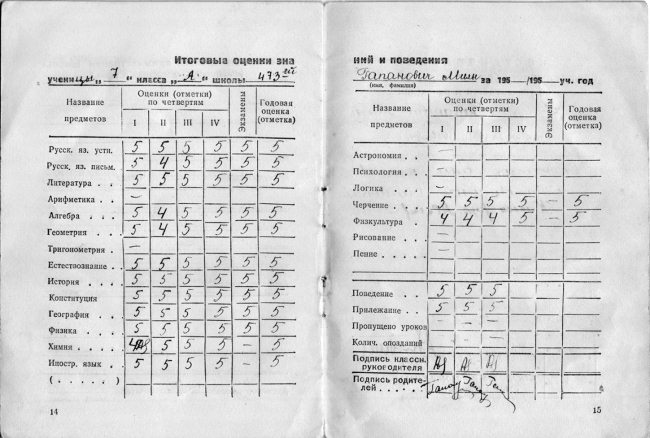 Итоговые оценки зна
учени цы „ 7 “ класса „ А “ школы 473 ей
Название предметов
Оценки (отметки) по четвертям
Экзамены
Годовая оценка (отметка)
I II III IV
Русск. яз. устн. 5 5 5 5 5 5
Русск. яз. письм. 5 4 5 5 5 5
Литература . . 5 5 5 5 5 5
Арифметика . . —
Алгебра . . . 5 4 5 5 5 5
Геометрия . . 5 4 5 5 5 5
Тригонометрия . —
Естествознание . 5 5 5 5 5 5
История . . . 5 5 5 5 5 5
Конституция 5 5 5 5 5 5
География . . 5 5 5 5 5 5
Физика . . . . 5 5 5 5 5 5
Химия . . . 5 5 5 — 5
Иностр. язык . 5 5 5 5 — 5
( . . . . . )
14
ний и поведения
Гапанович за 195 /195 уч. год
(имя, фамилия)
Название предметов
Оценки (отметки) по четвертям
Экзамены
Годовая оценка (отметка)
I II III IV
Астрономия . . —
Психология . . —
Логика . . . . —
Черчение . . . 5 5 5 5 — 5
Физкультура . 4 4 4 5 — 5
Рисование . . —
Пение . . . . —
Поведение . . 5 5 5
Прилежание . . 5 5 5
Пропущено уроков — — —
Колич. опозданий — — —
Подпись классн.
руководителя
Подпись родите-
лей . . . . .
15